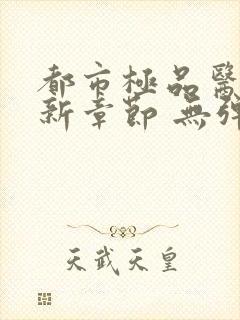 都市極品醫
新章節 無彈
天武天皇